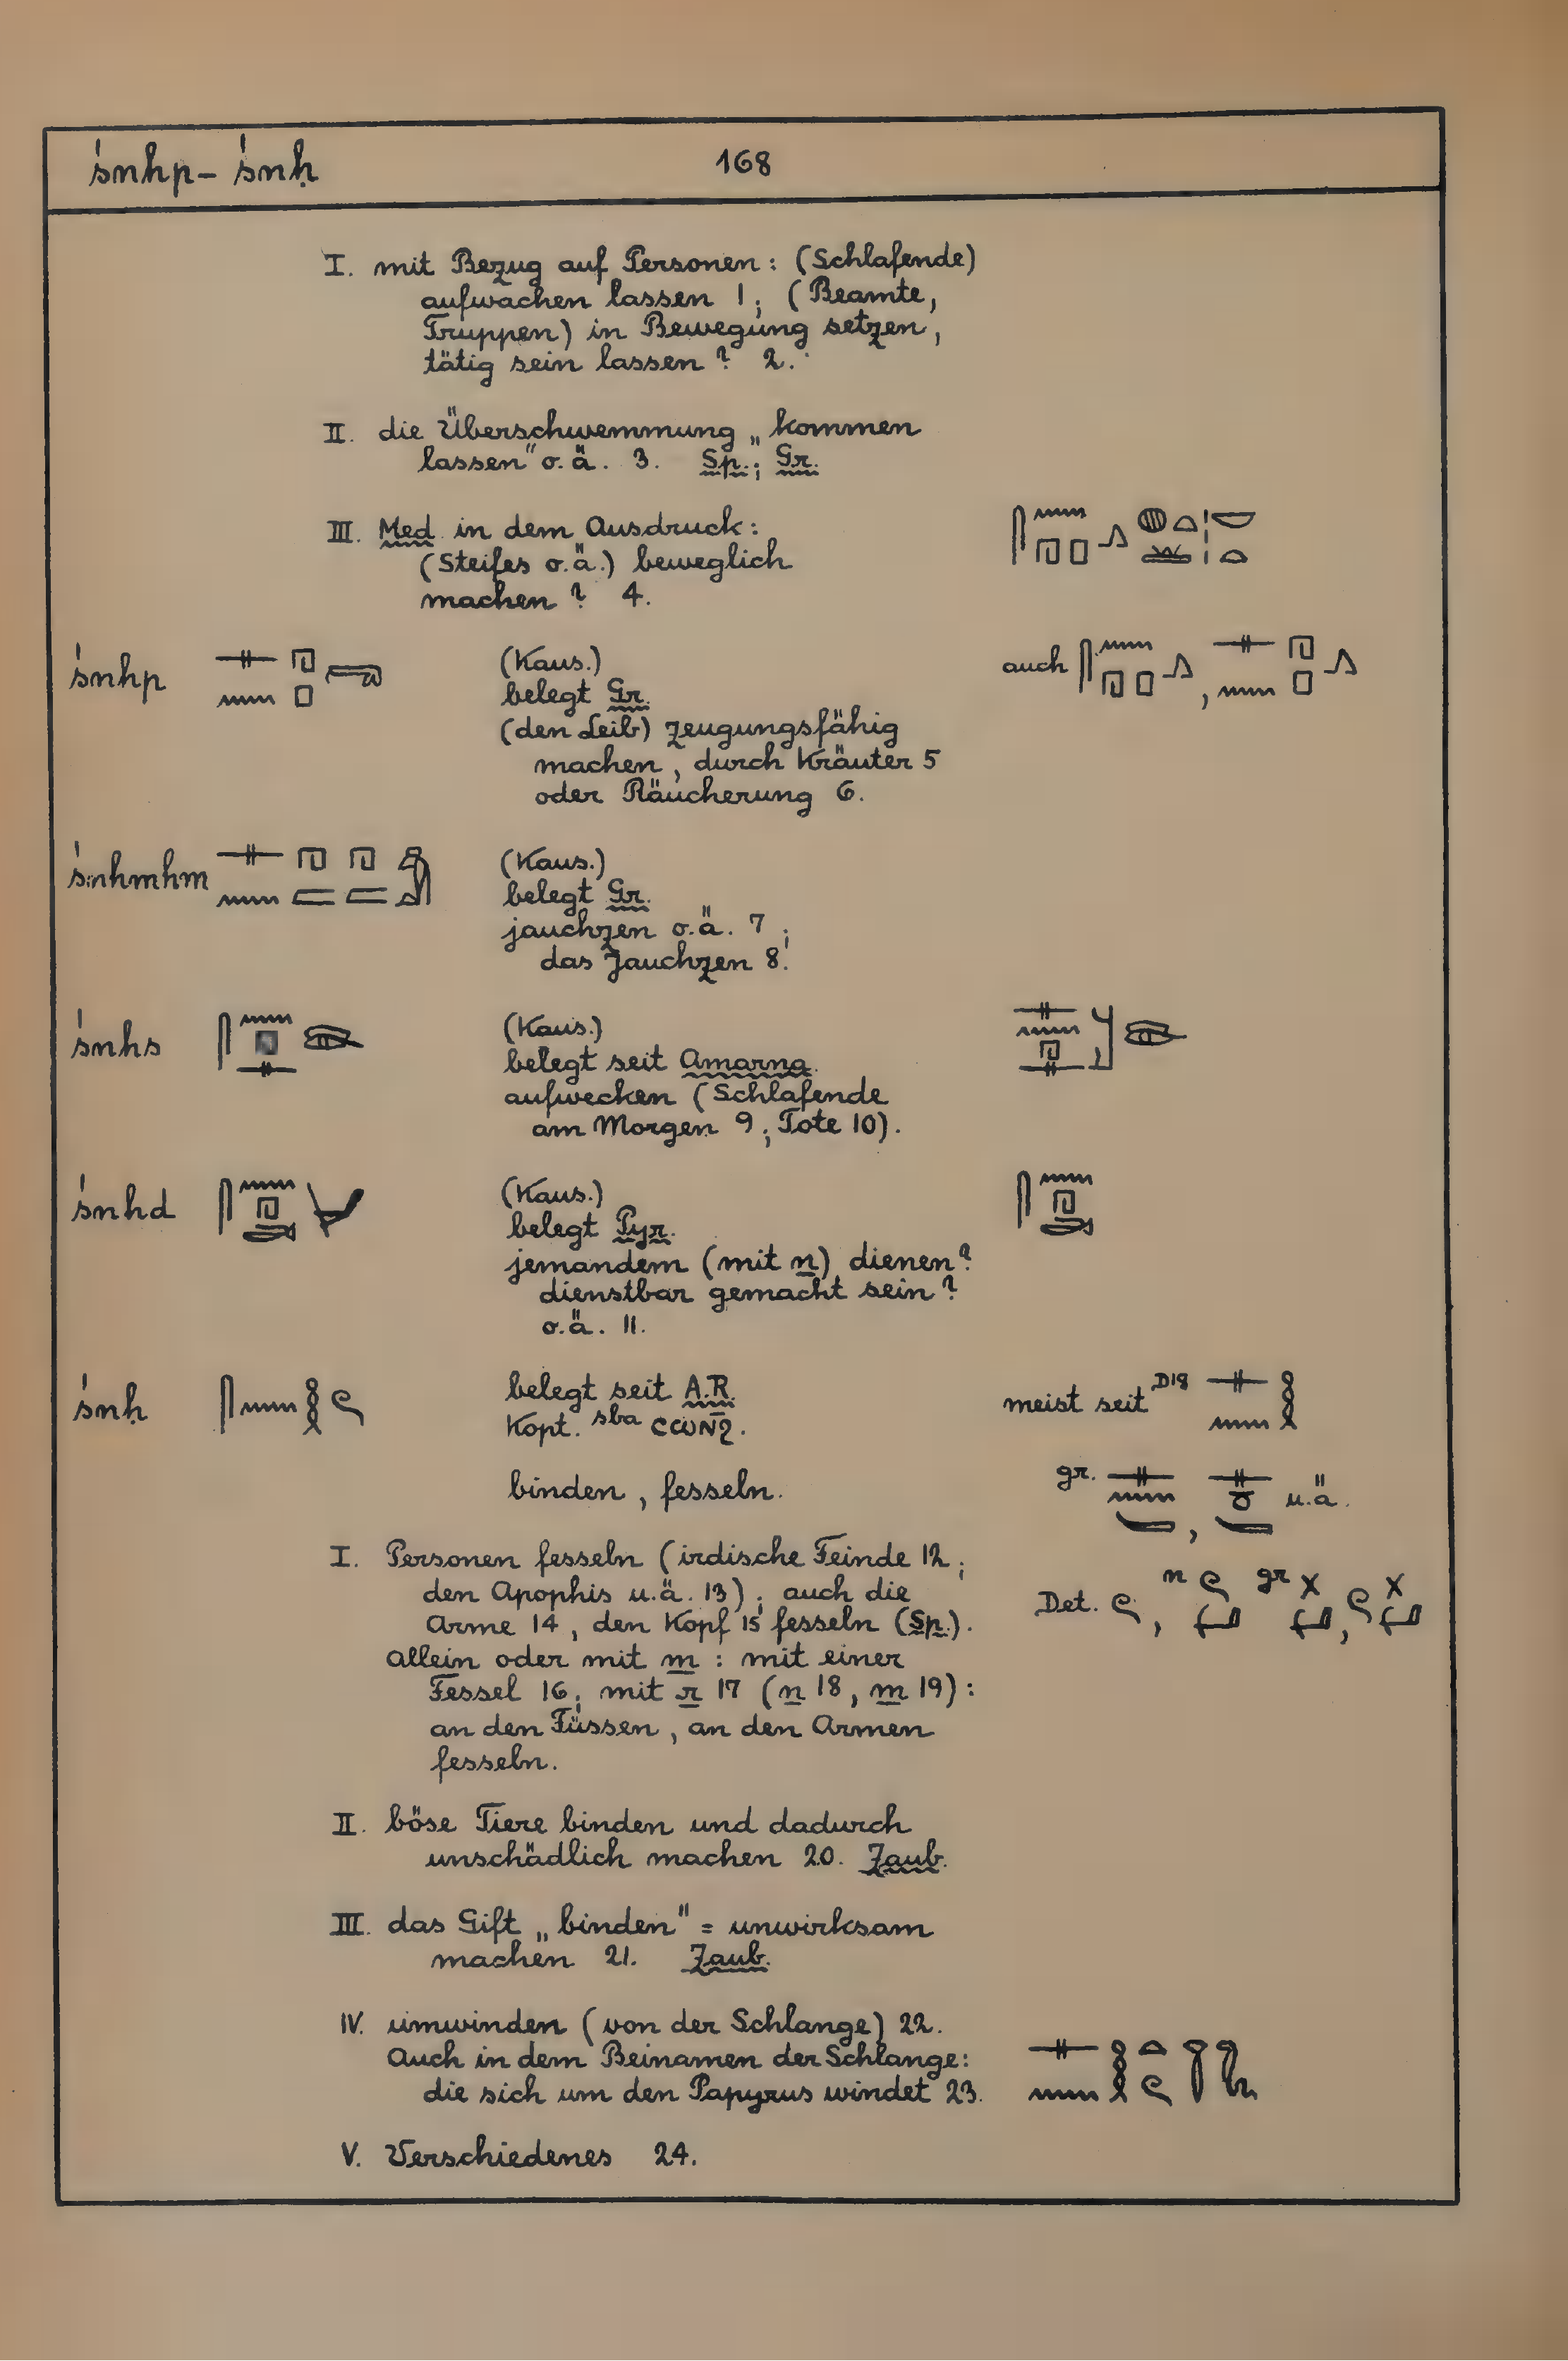 śnhp – śnḥ 168
I. mit Bezug auf Personen: (Schlafende)
aufwachen lassen 1; (Beamte,
Truppen) in Bewegung setzen,
tätig sein lassen? 2.
II. die Überschwemmung „kommen
lassen" o.ä. 3. Sp.; Gr.
III. Med. in dem Ausdruck:
(Steifes o.ä.) beweglich
machen? 4.
śnhp (Kaus.) auch
belegt Gr.
(den Leib) zeugungsfähig
machen, durch Kräuter 5
oder Räucherung 6.
śnhmhm (Kaus.)
belegt Gr.
jauchzen o.ä. 7;
das Jauchzen 8.
śnhs (Kaus.)
belegt seit Amarna.
aufwecken (Schlafende
am Morgen 9; Tote 10).
śnhd (Kaus.)
belegt Pyr.
jemandem (mit n) dienen?
dienstbar gemacht sein?
o.ä. 11.
śnḥ belegt seit A.R. meist seit D18
Kopt. sba ⲥⲱⲛ̄ϩ.
binden, fesseln. gr. , u.ä.
I. Personen fesseln (irdische Feinde 12;
den Apophis u.ä. 13); auch die
Arme 14, den Kopf 15 fesseln (Sp.). Det. , n gr ,
Allein oder mit m: mit einer
Fessel 16; mit r 17 (n 18, m 19):
an den Füssen, an den Armen
fesseln.
II. böse Tiere binden und dadurch
unschädlich machen 20. Zaub.
III. das Gift „binden" = unwirksam
machen 21. Zaub.
IV. umwinden (von der Schlange) 22.
Auch in dem Beinamen der Schlange:
die sich um den Papyrus windet 23.
V. Verschiedenes 24.